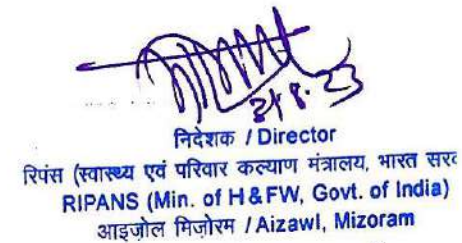 21.8.23
निदेशक / Director
रिपंस (स्वास्थ्य एवं परिवार कल्याण मंत्रालय, भारत
RIPANS (Min. of H&FW, Govt. of India)
आइज़ोल मिज़ोरम / Aizawl, Mizoram